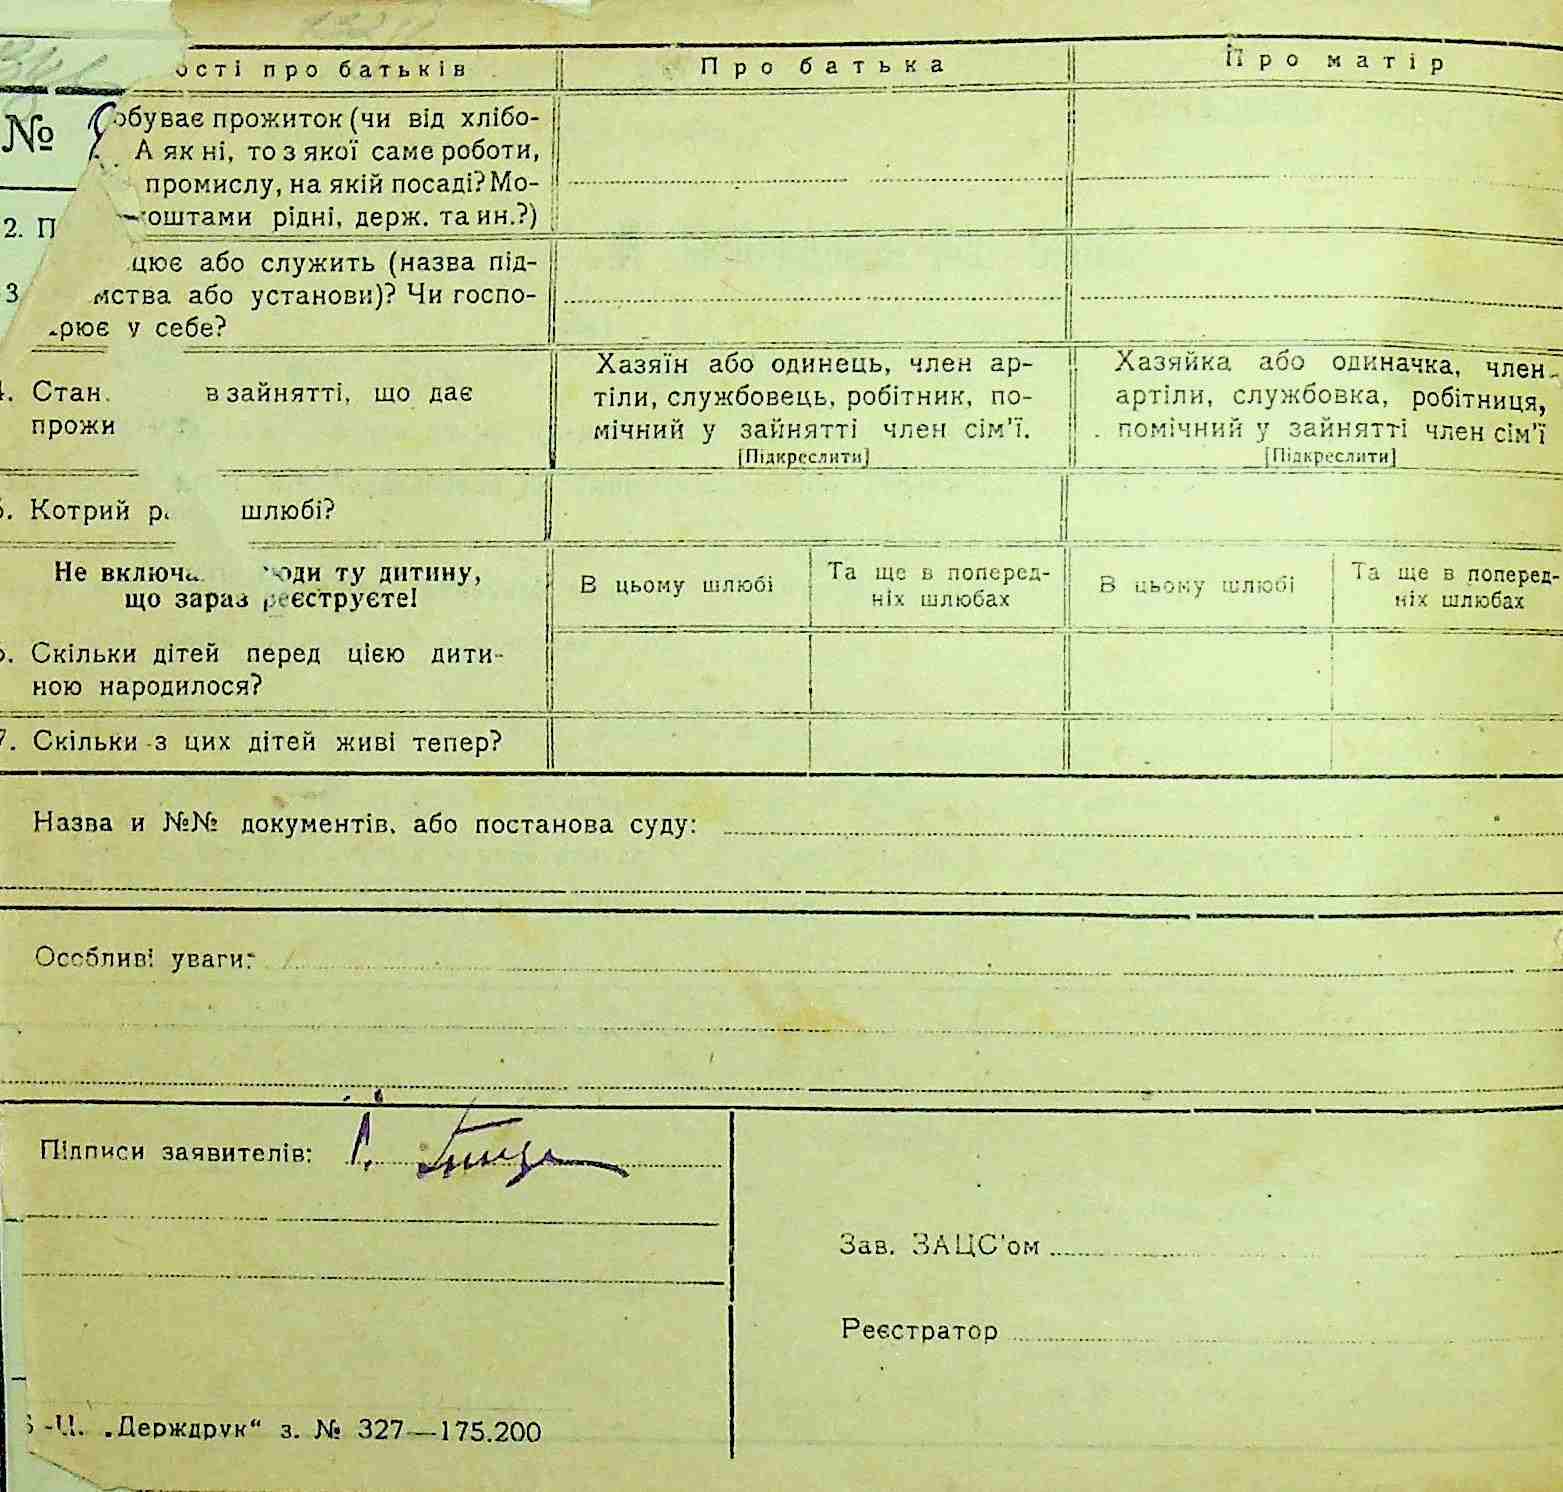 ості про батьків Про батька Про матір
№
обуває прожиток (чи від хлібо-
А як ні, то з якої саме роботи,
промислу, на якій посаді? Мо-
коштами рідні, держ. та ин.?)
2. П
3
цює або служить (назва під-
мства або установи)? Чи госпо-
рює у себе?
Стан в зайнятті, що дає
прожи
Хазяїн або одинець, член ар-
тіли, службовець, робітник, по-
мічний у зайнятті член сім'ї.
[Підкреслити]
Хазяйка або одиначка, член
артіли, службовка, робітниця,
помічний у зайнятті член сім'ї
[Підкреслити]
Котрий р шлюбі?
Не включа оди ту дитину,
що зараз реєструєте!
В цьому шлюбі
Та ще в поперед-
ніх шлюбах
В цьому шлюбі
Та ще в поперед-
ніх шлюбах
Скільки дітей перед цією дити-
ною народилося?
7. Скільки з цих дітей живі тепер?
Назва и №№ документів, або постанова суду:
Особливі уваги:
Підписи заявителів:
Зав. ЗАЦС'ом
Реєстратор
-Ц. „Держдрук“ з. № 327—175.200